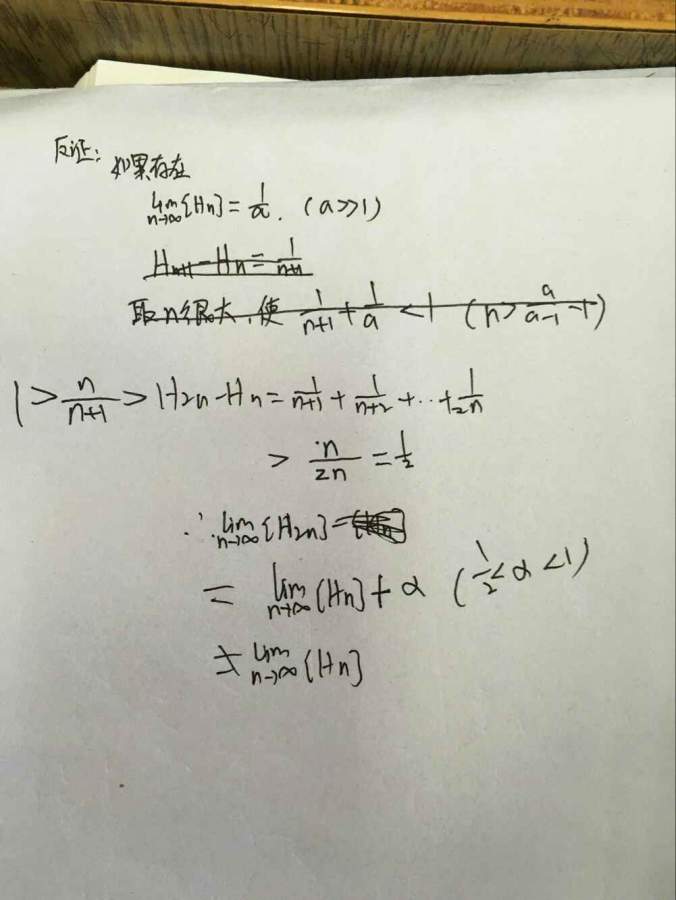 反证: 如果存在
lim n→∞ {Hn} = 1/a. (a≫1)
Hn+1 - Hn = 1/n+1
取n很大, 使 1/n+1 + 1/a < 1 (n > a/a-1 -1)
1 > n/n+1 > H2n - Hn = 1/n+1 + 1/n+2 + ·· + 1/2n
> n/2n = 1/2
∴ lim n→∞ {H2n} =
= lim n→∞ {Hn} + α (1/2 < α < 1)
≠ lim n→∞ {Hn}